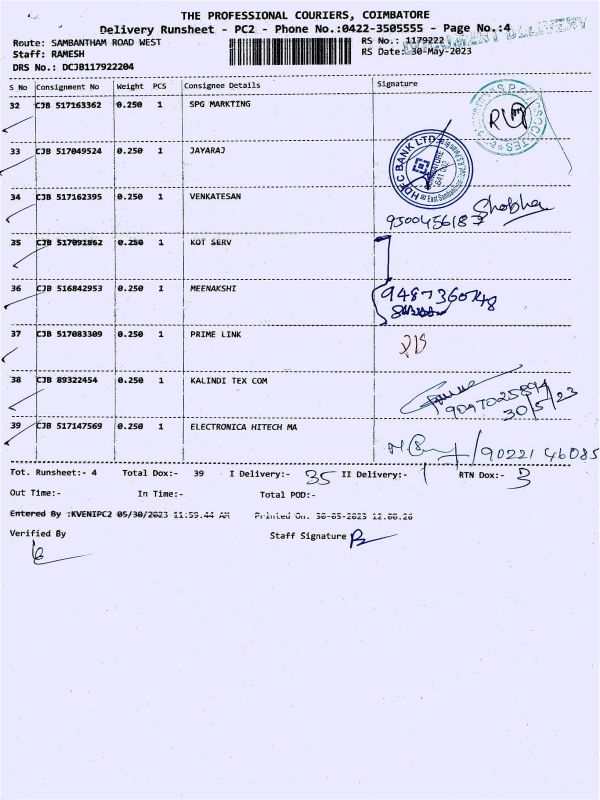 THE PROFESSIONAL COURIERS, COIMBATORE
Delivery Runsheet - PC2 - Phone No.:0422-3505555 - Page No.:4
Route: SAMBANTHAM ROAD WEST
RS No.: 1179222
Staff: RAMESH
RS Date: 30-May-2023
DRS No.: DCJB117922204
S No Consignment No Weight PCS Consignee Details Signature
32 CJB 517163362 0.250 1 SPG MARKTING
33 CJB 517049524 0.250 1 JAYARAJ
HDFC BANK LTD
34 CJB 517162395 0.250 1 VENKATESAN
Shobha
35 CJB 517091862 0.250 1 KOT SERV
36 CJB 516842953 0.250 1 MEENAKSHI
37 CJB 517083309 0.250 1 PRIME LINK
38 CJB 89322454 0.250 1 KALINDI TEX COM
30/5/23
39 CJB 517147569 0.250 1 ELECTRONICA HITECH MA
9022146085
Tot. Runsheet:- 4 Total Dox:- 39 I Delivery:- 35 II Delivery:- 1 RTN Dox:- 3
Out Time:- In Time:- Total POD:-
Entered By :KVENIPC2 05/30/2023 11:59.44 AM Printed On. 30-05-2023 12.00.26
Verified By
Staff Signature